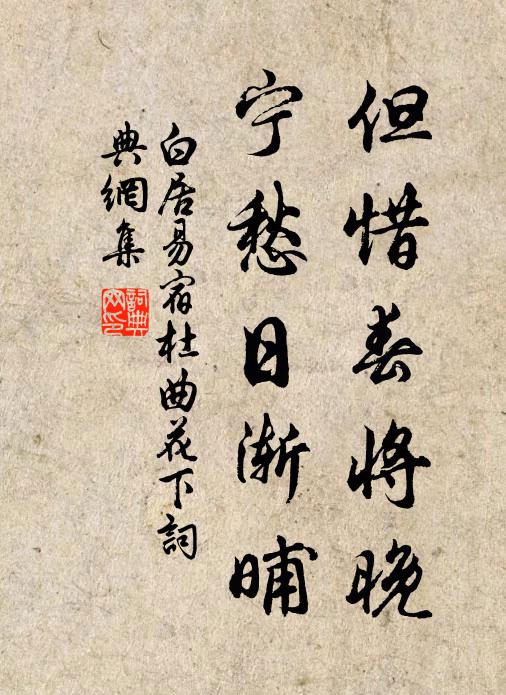 但惜春将晚
宁愁日渐晡
白居易宿杜曲花下詞
典網集
詞典
网印